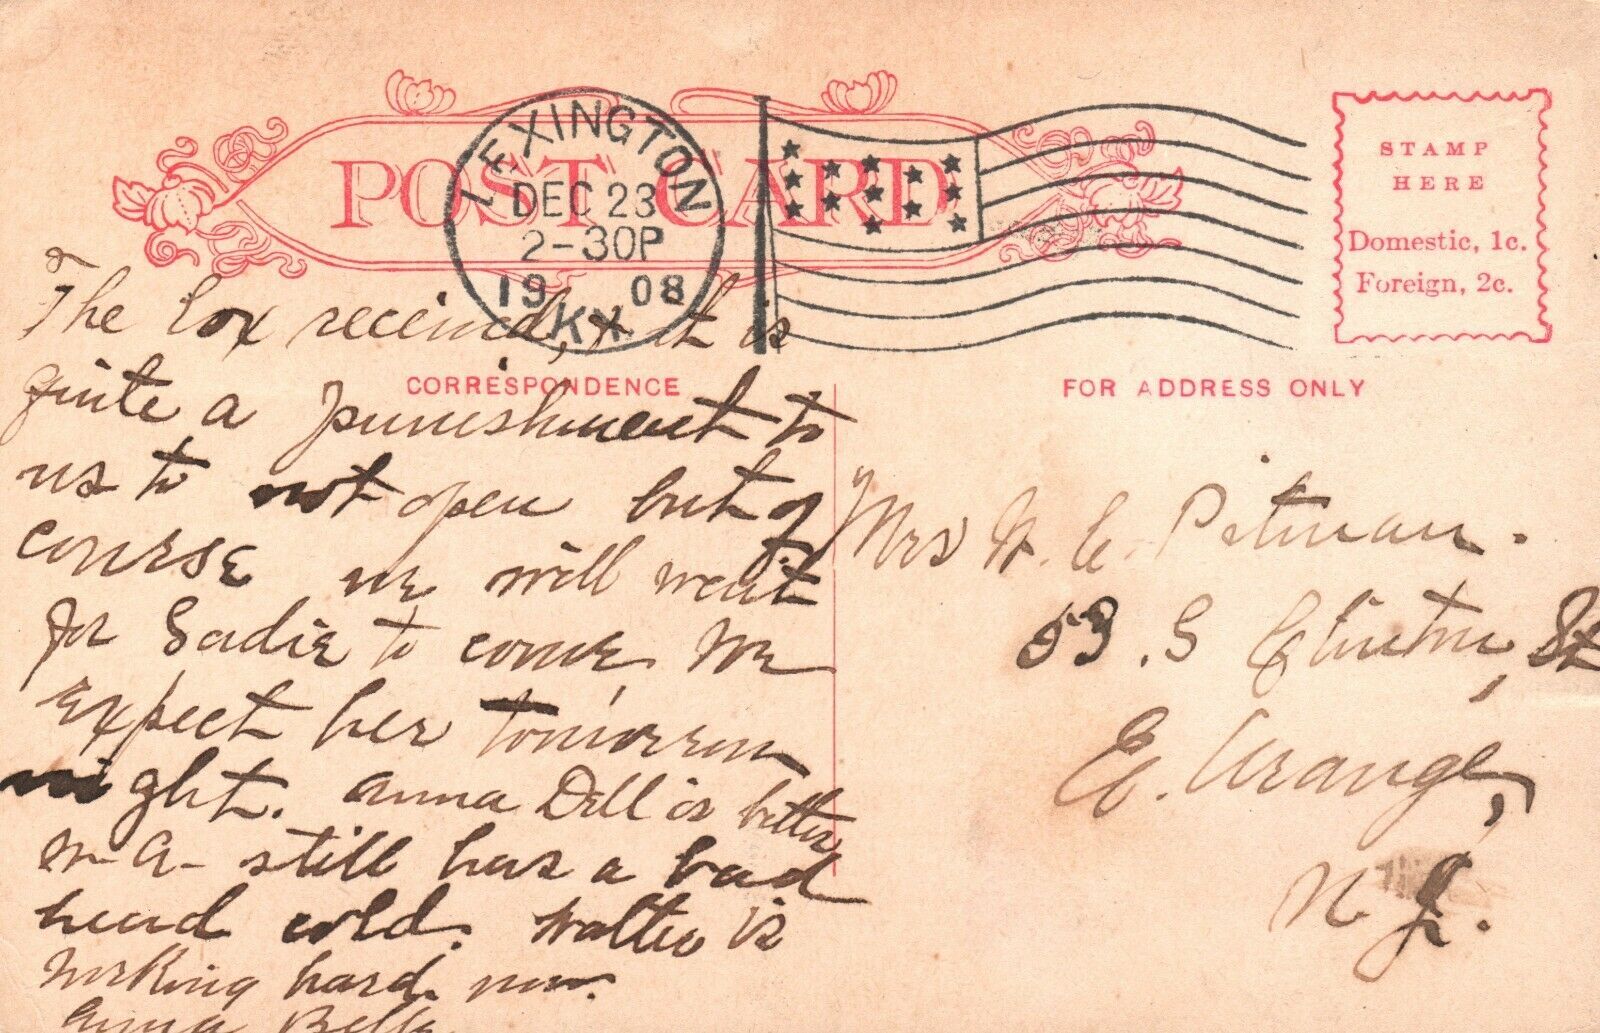 POST CARD
LEXINGTON
DEC 23
2-30P
19 08
KY.
STAMP
HERE
Domestic, 1c.
Foreign, 2c.
CORRESPONDENCE
FOR ADDRESS ONLY
The box received, & it is
quite a punishment to
us to not open but of
course we will wait
for Sadie to come. We
expect her tomorrow
night. Anna Dell is better
M- A- still has a bad
head cold. Walter is
working hard now.
Anna Belle
Mrs W. C. Pitman.
53. S Clinton, St
E. Orange,
N. J.